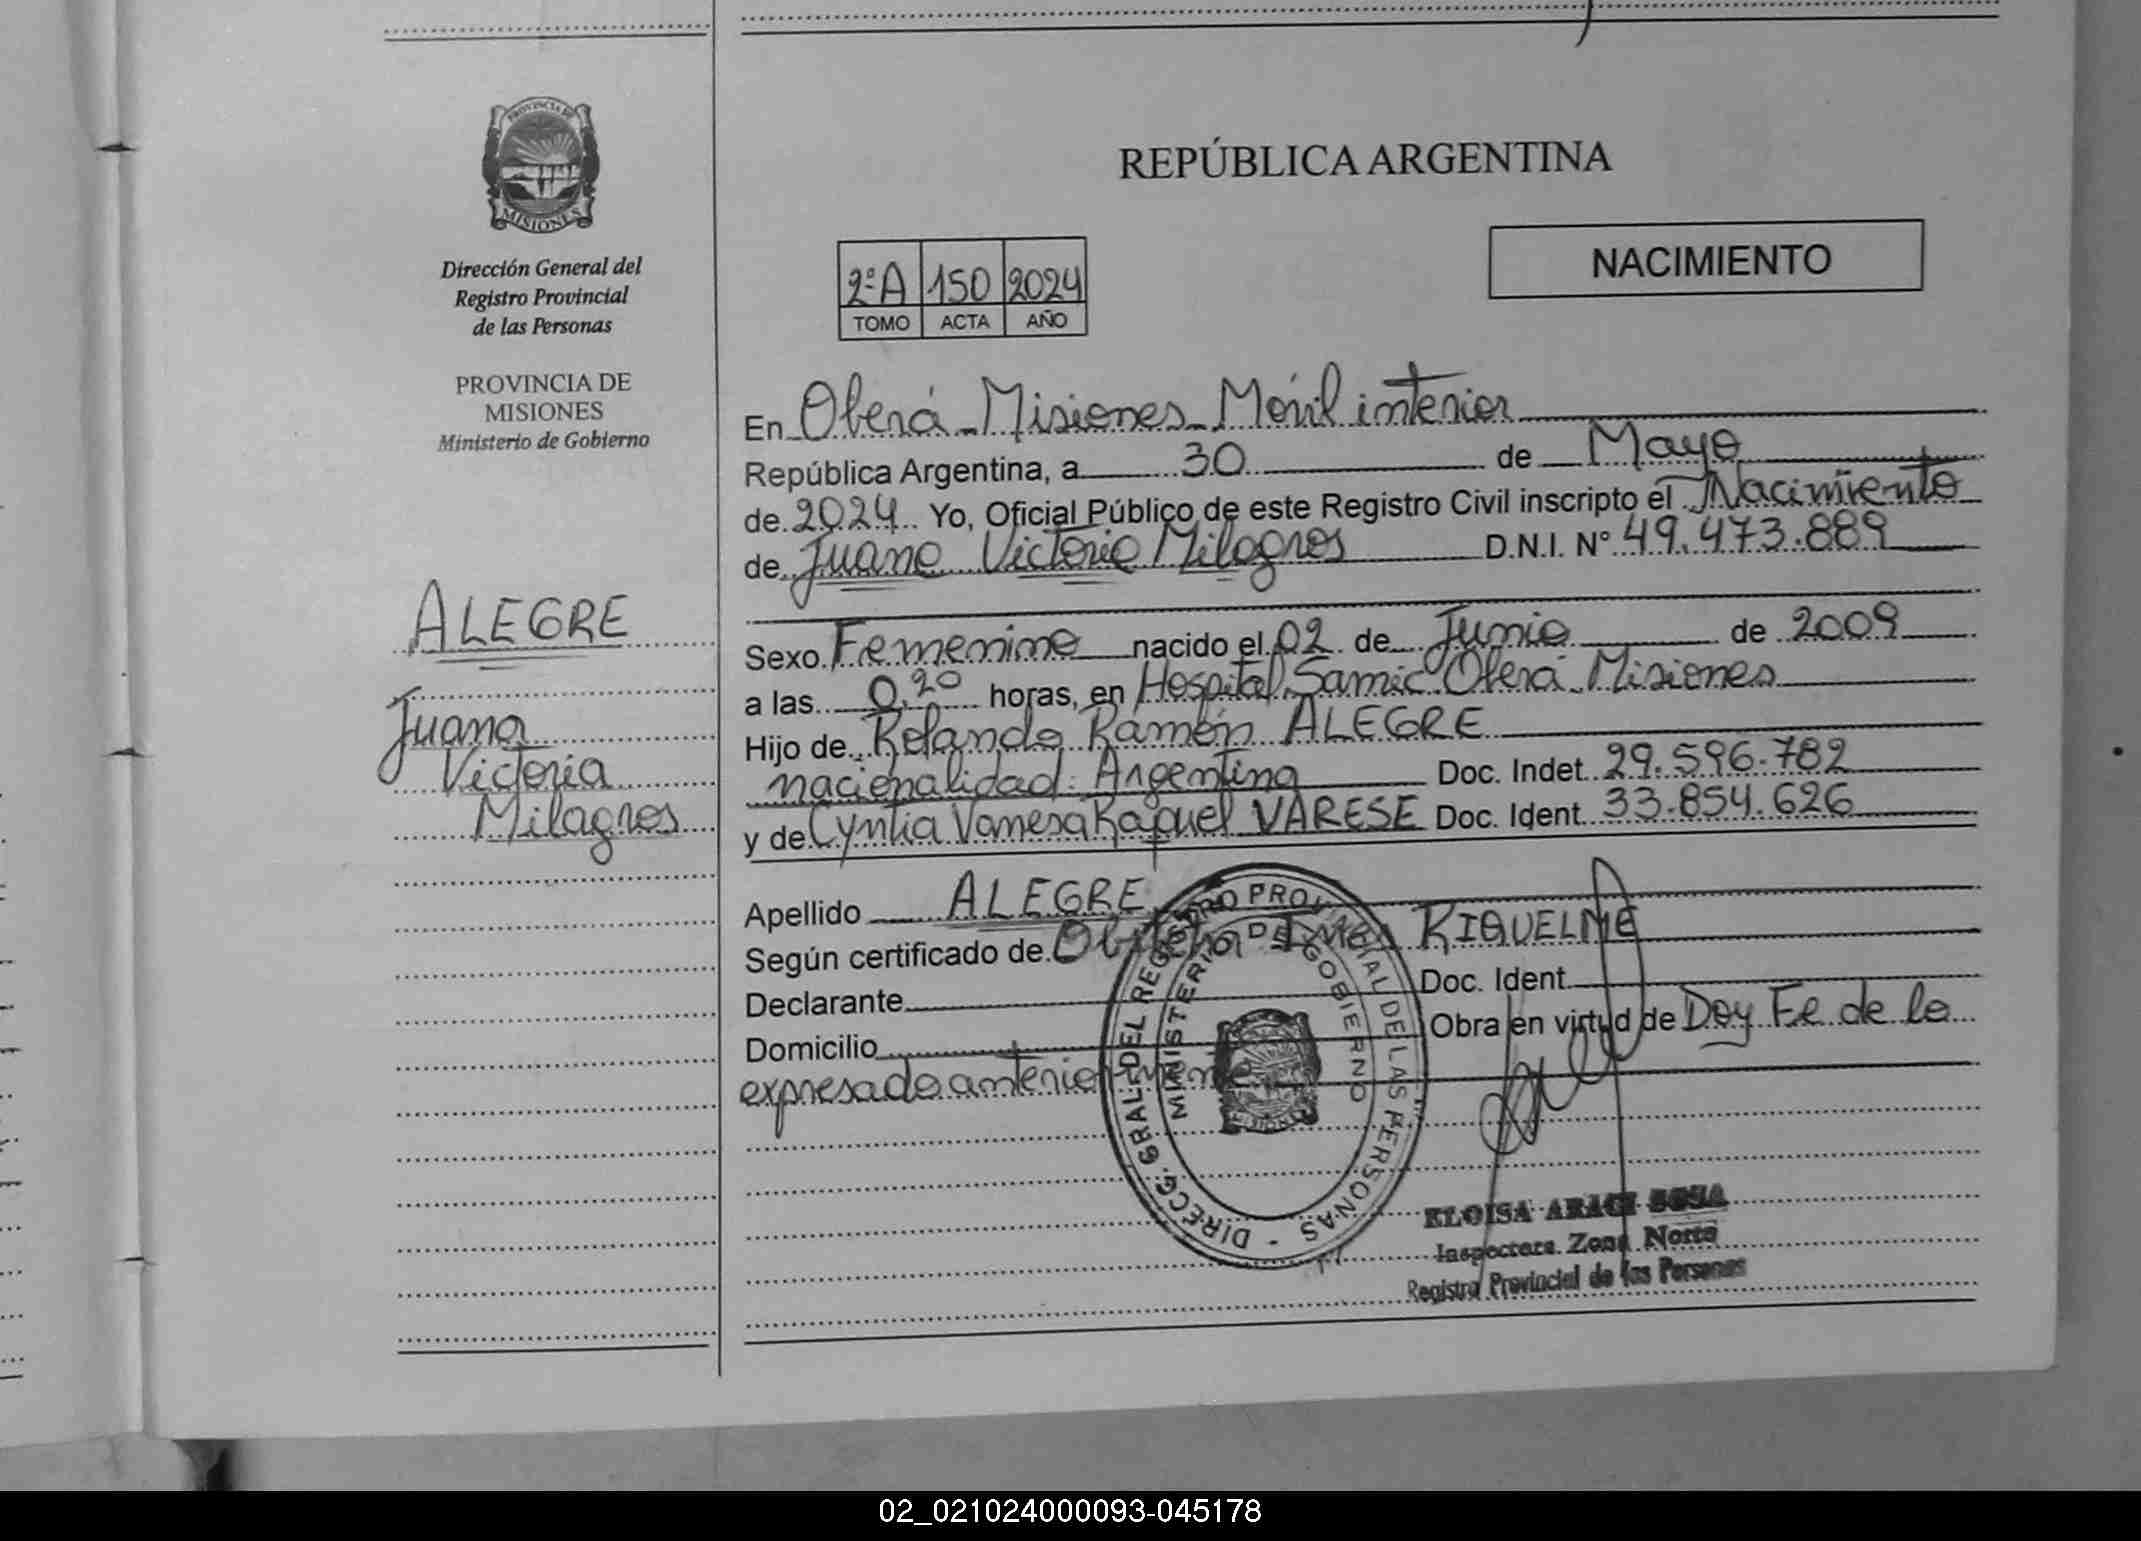 PROVINCIA DE
MISIONES
Dirección General del
Registro Provincial
de las Personas
PROVINCIA DE
MISIONES
Ministerio de Gobierno
ALEGRE
Juana
Victoria
Milagros
REPÚBLICA ARGENTINA
NACIMIENTO
2ºA 150 2024
TOMO ACTA AÑO
En Oberá Misiones Móvil interior
República Argentina, a 30 de Mayo
de 2024 Yo, Oficial Público de este Registro Civil inscripto el Nacimiento
de Juana Victoria Milagros D.N.I. Nº 49.473.889
Sexo Femenino nacido el 02 de Junio de 2009
a las 0,20 horas, en Hospital Samic Oberá Misiones
Hijo de Rolando Ramón ALEGRE
nacionalidad: Argentina Doc. Indet. 29.596.782
y de Cyntia Vanesa Raquel VARESE Doc. Ident. 33.854.626
Apellido ALEGRE
Según certificado de Obstetra RIQUELME
Declarante Doc. Ident.
Domicilio Obra en virtud de Doy Fe de lo
expresado anteriormente
DIRECC. GRAL. DEL REGISTRO PROVINCIAL DE LAS PERSONAS -
MINISTERIO DE GOBIERNO
ELOISA ARACI SOSA
Inspectora Zona Norte
Registro Provincial de las Personas
02_021024000093-045178